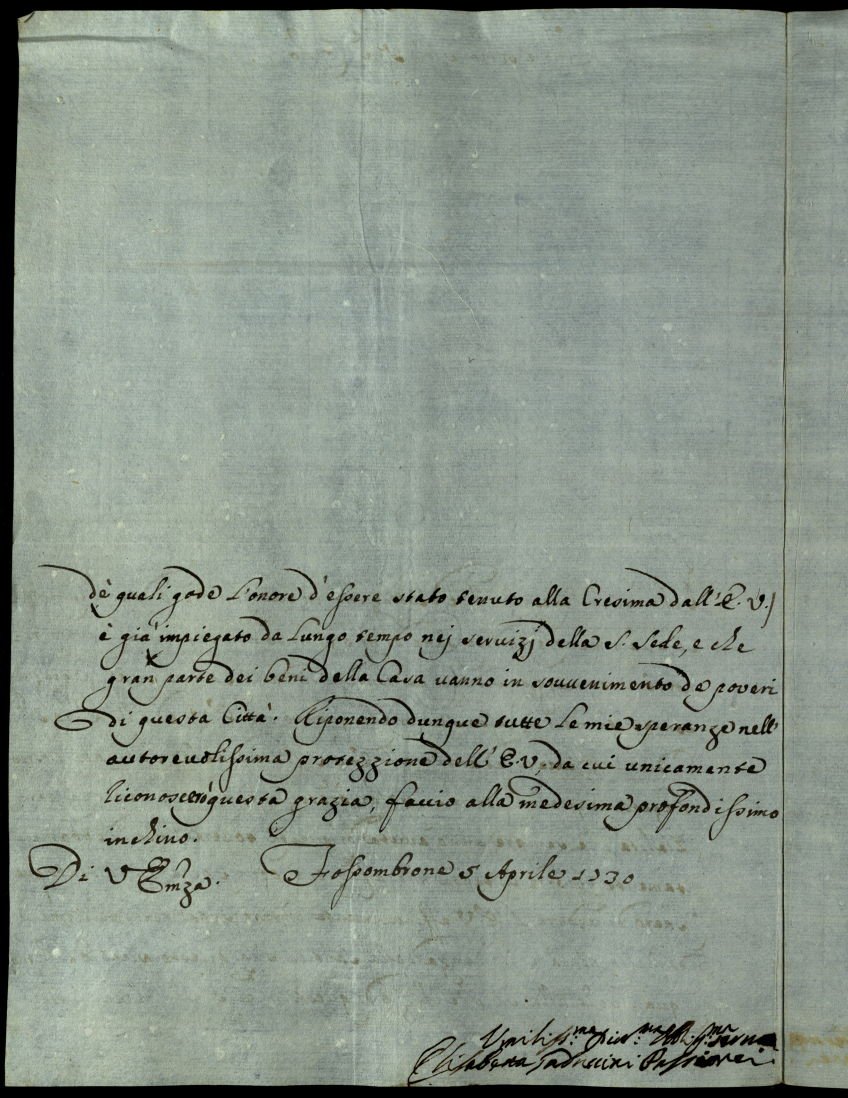 de quali gode l'onore d'essere stato tenuto alla Cresima dall'E. V.)
è già impiegato da lungo tempo nej servizj della S. Sede, e che
gran parte dei beni della Casa vanno in souvenimento de poveri
di questa Città. Riponendo dunque tutte le mie speranze nell'
autorevolissima protezzione dell'E. V., da cui unicamente
riconoscerò questa grazia, faccio alla medesima profondissimo
inchino.
Di V. Emza. Fossombrone 5 Aprile 1730
Umilissma Obblma serva
Elisabetta Passionei